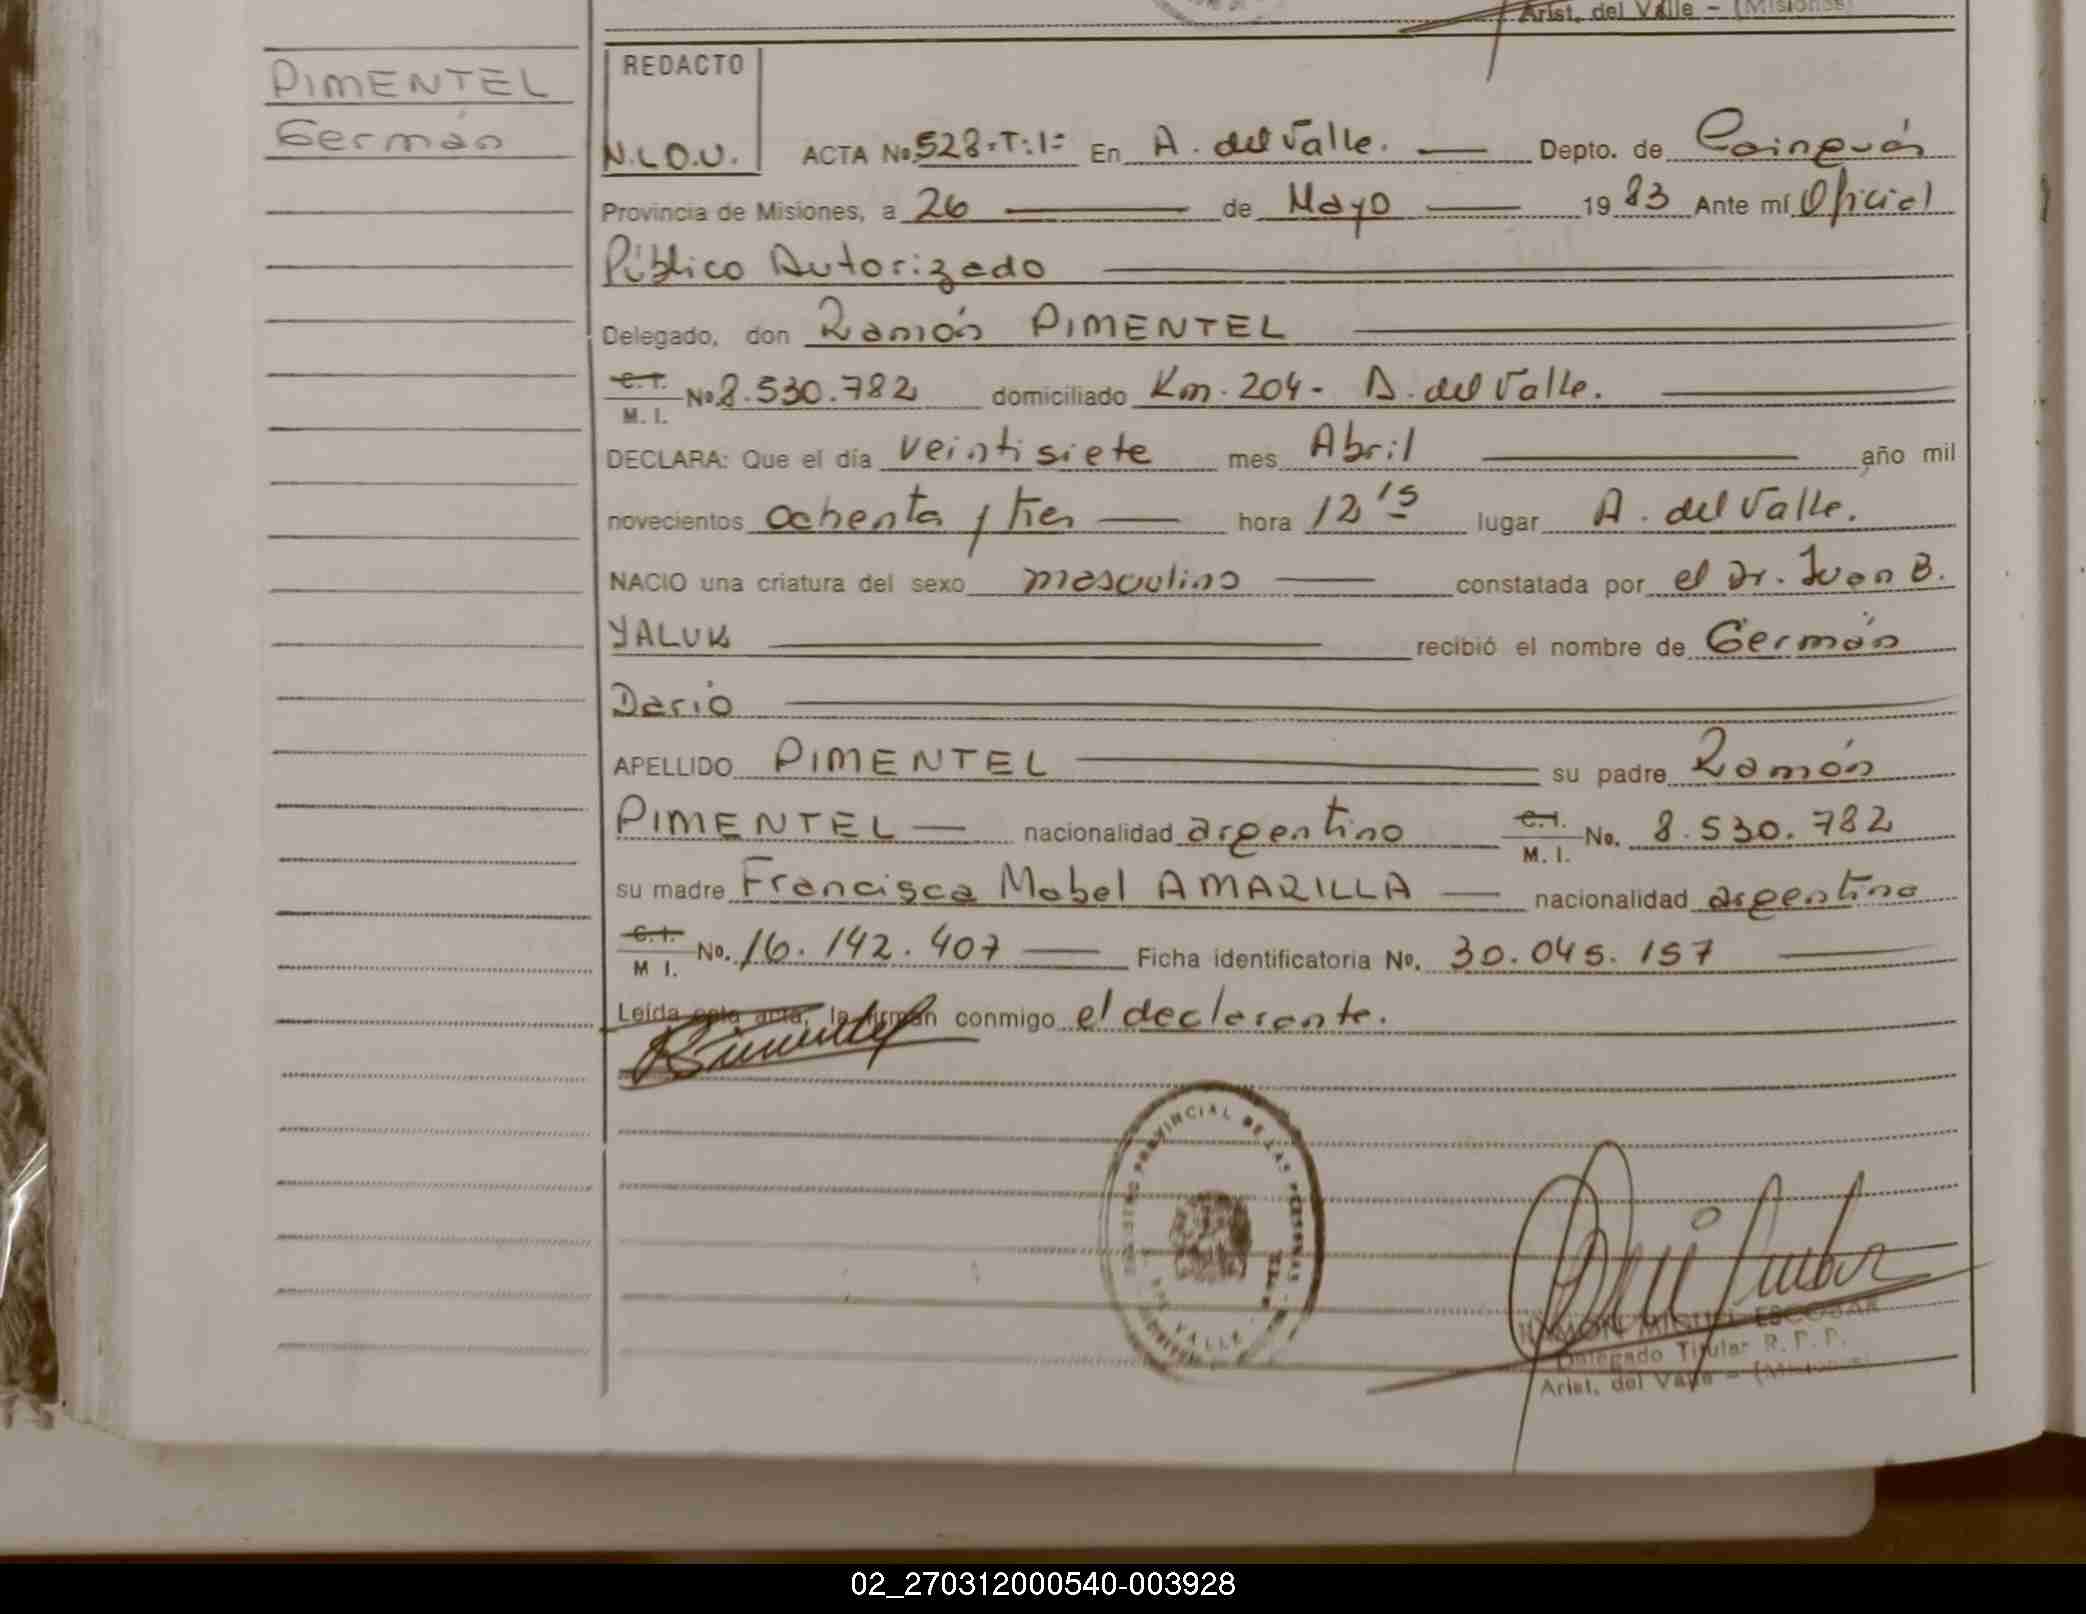 Arist. del Valle - (Misiones)
PIMENTEL
Germán
REDACTO
N.L.O.U.
ACTA No. 528-T:1= En A. del Valle. Depto. de Cainguás
Provincia de Misiones, a 26 de Mayo 1983 Ante mí Oficial
Público Autorizado
Delegado, don Ramón PIMENTEL
C.I. M. I. No. 8.530.782 domiciliado Km. 204- A. del Valle.
DECLARA: Que el día veintisiete mes Abril año mil
novecientos ochenta y tres hora 12 15 lugar A. del Valle.
NACIO una criatura del sexo masculino constatada por el Dr. Juan B.
YALUK recibió el nombre de Germán
Dario
APELLIDO PIMENTEL su padre Ramón
PIMENTEL nacionalidad argentino C.I. M. I. No. 8.530.782
su madre Francisca Mabel AMARILLA nacionalidad argentina
C.I. M I. No. 16.142.407 Ficha identificatoria No. 30.045.157
Leída esta acta, la firman conmigo el declarante.
PROVINCIAL DE LAS PERSONAS
VALLE
RAMON MIGUEL ESCOBAR
Delegado Titular R. P. P.
Arist. del Valle - (Misiones)
02_270312000540-003928